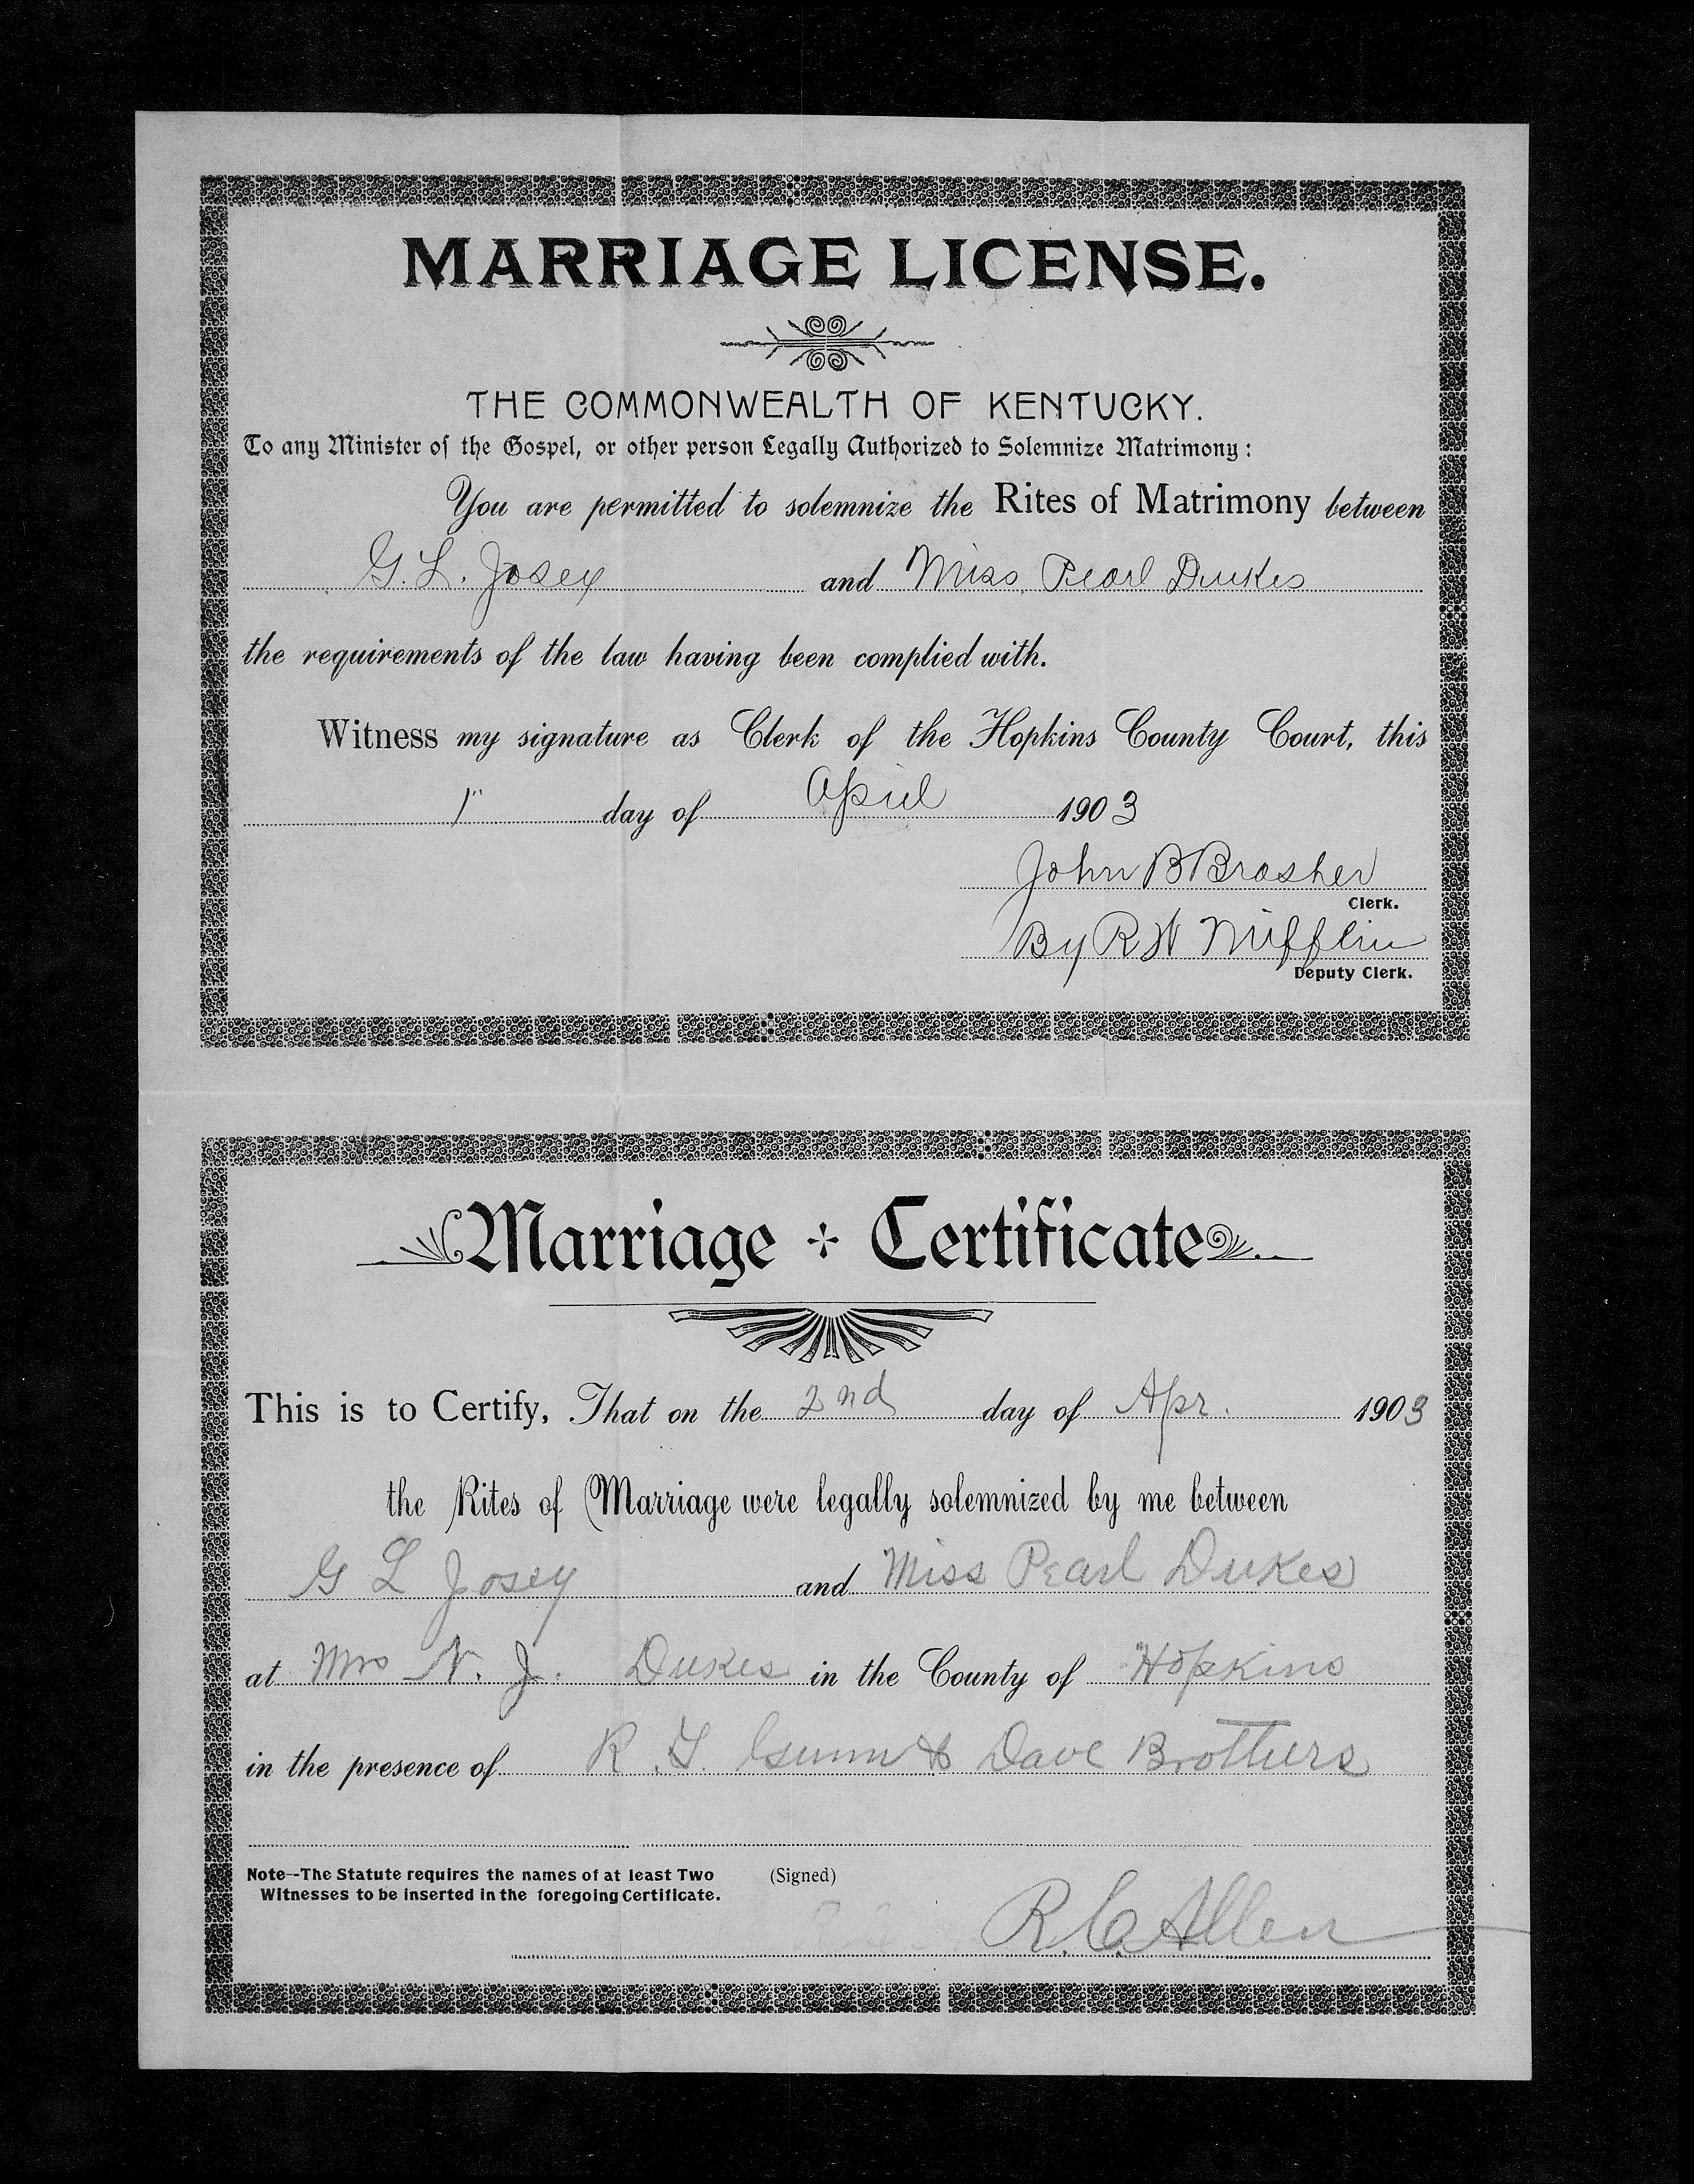 MARRIAGE LICENSE.
THE COMMONWEALTH OF KENTUCKY.
To any Minister of the Gospel, or other person Legally Authorized to Solemnize Matrimony:
You are permitted to solemnize the Rites of Matrimony between
G. L. Josey and Miss. Pearl Dukes
the requirements of the law having been complied with.
Witness my signature as Clerk of the Hopkins County Court, this
1" day of April 1903
John B Brasher
Clerk.
By R W Mifflin
Deputy Clerk.
Marriage Certificate
This is to Certify, That on the 2nd day of Apr. 1903
the Rites of Marriage were legally solemnized by me between
G L Josey and Miss Pearl Dukes
at Mrs N. J. Dukes in the County of Hopkins
in the presence of R. Gunn & Dave Brothers
Note--The Statute requires the names of at least Two (Signed)
Witnesses to be inserted in the foregoing Certificate.
R. C. Allen